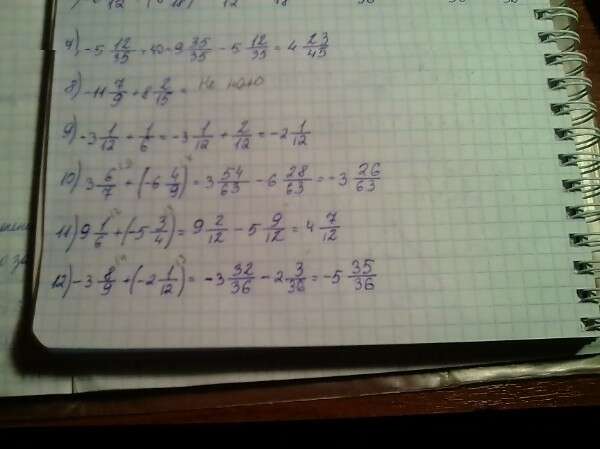 7) -5 12/35 + 10 = 9 35/35 - 5 12/35 = 4 23/45
8) -11 7/9 + 8 2/15 = Не надо
9) -3 1/12 + 1/6 = -3 1/12 + 2/12 = -2 1/12
10) 3 6/7 + (-6 4/9) = 3 54/63 - 6 28/63 = -3 26/63
11) 9 1/6 + (-5 3/4) = 9 2/12 - 5 9/12 = 4 7/12
12) -3 8/9 + (-2 1/12) = -3 32/36 - 2 3/36 = -5 35/36